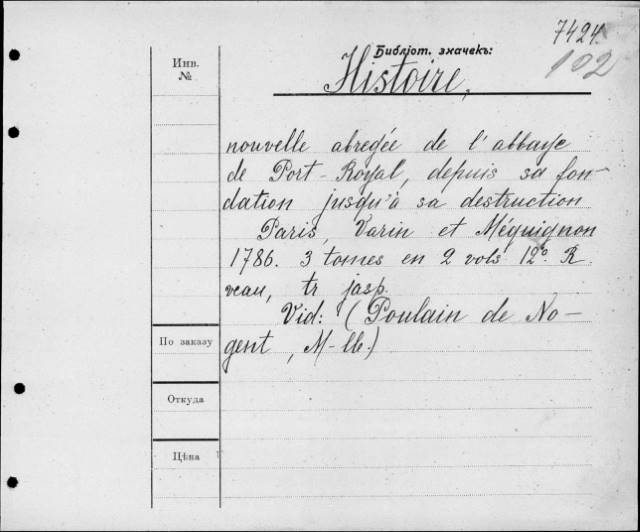 7424.
Библіот. значекъ:
102
Инв.
№
Histoire,
nouvelle abregée de l'abbaye
de Port-Royal, depuis sa fon-
dation jusqu'à sa destruction
Paris, Varin et Méquignon
1786. 3 tomes en 2 vols 12º. R.
veau, tr jasp.
Vid: (Poulain de No-
gent, M-lle.)
По заказу
Откуда
Цѣна